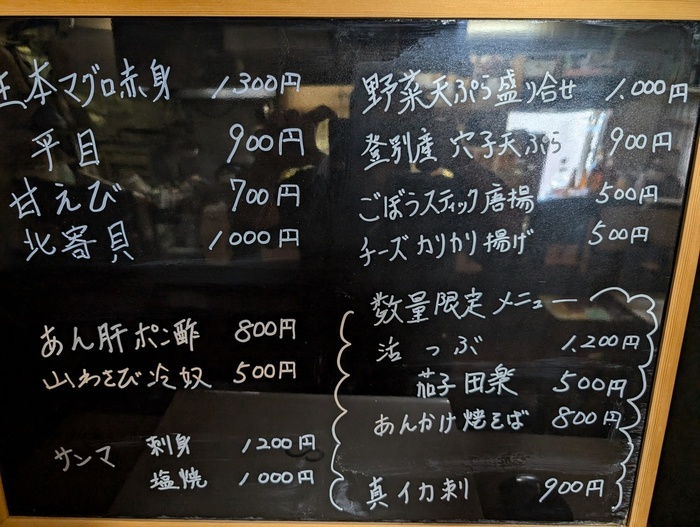 生本マグロ赤身 1300円
平目 900円
甘えび 700円
北寄貝 1000円
あん肝ポン酢 800円
山わさび冷奴 500円
サンマ 刺身 1200円
塩焼 1000円
野菜天ぷら盛り合せ 1,000円
登別産 穴子天ぷら 900円
ごぼうスティック唐揚 500円
チーズカリカリ揚げ 500円
数量限定メニュー
活つぶ 1,200円
茄子田楽 500円
あんかけ焼そば 800円
真イカ刺 900円